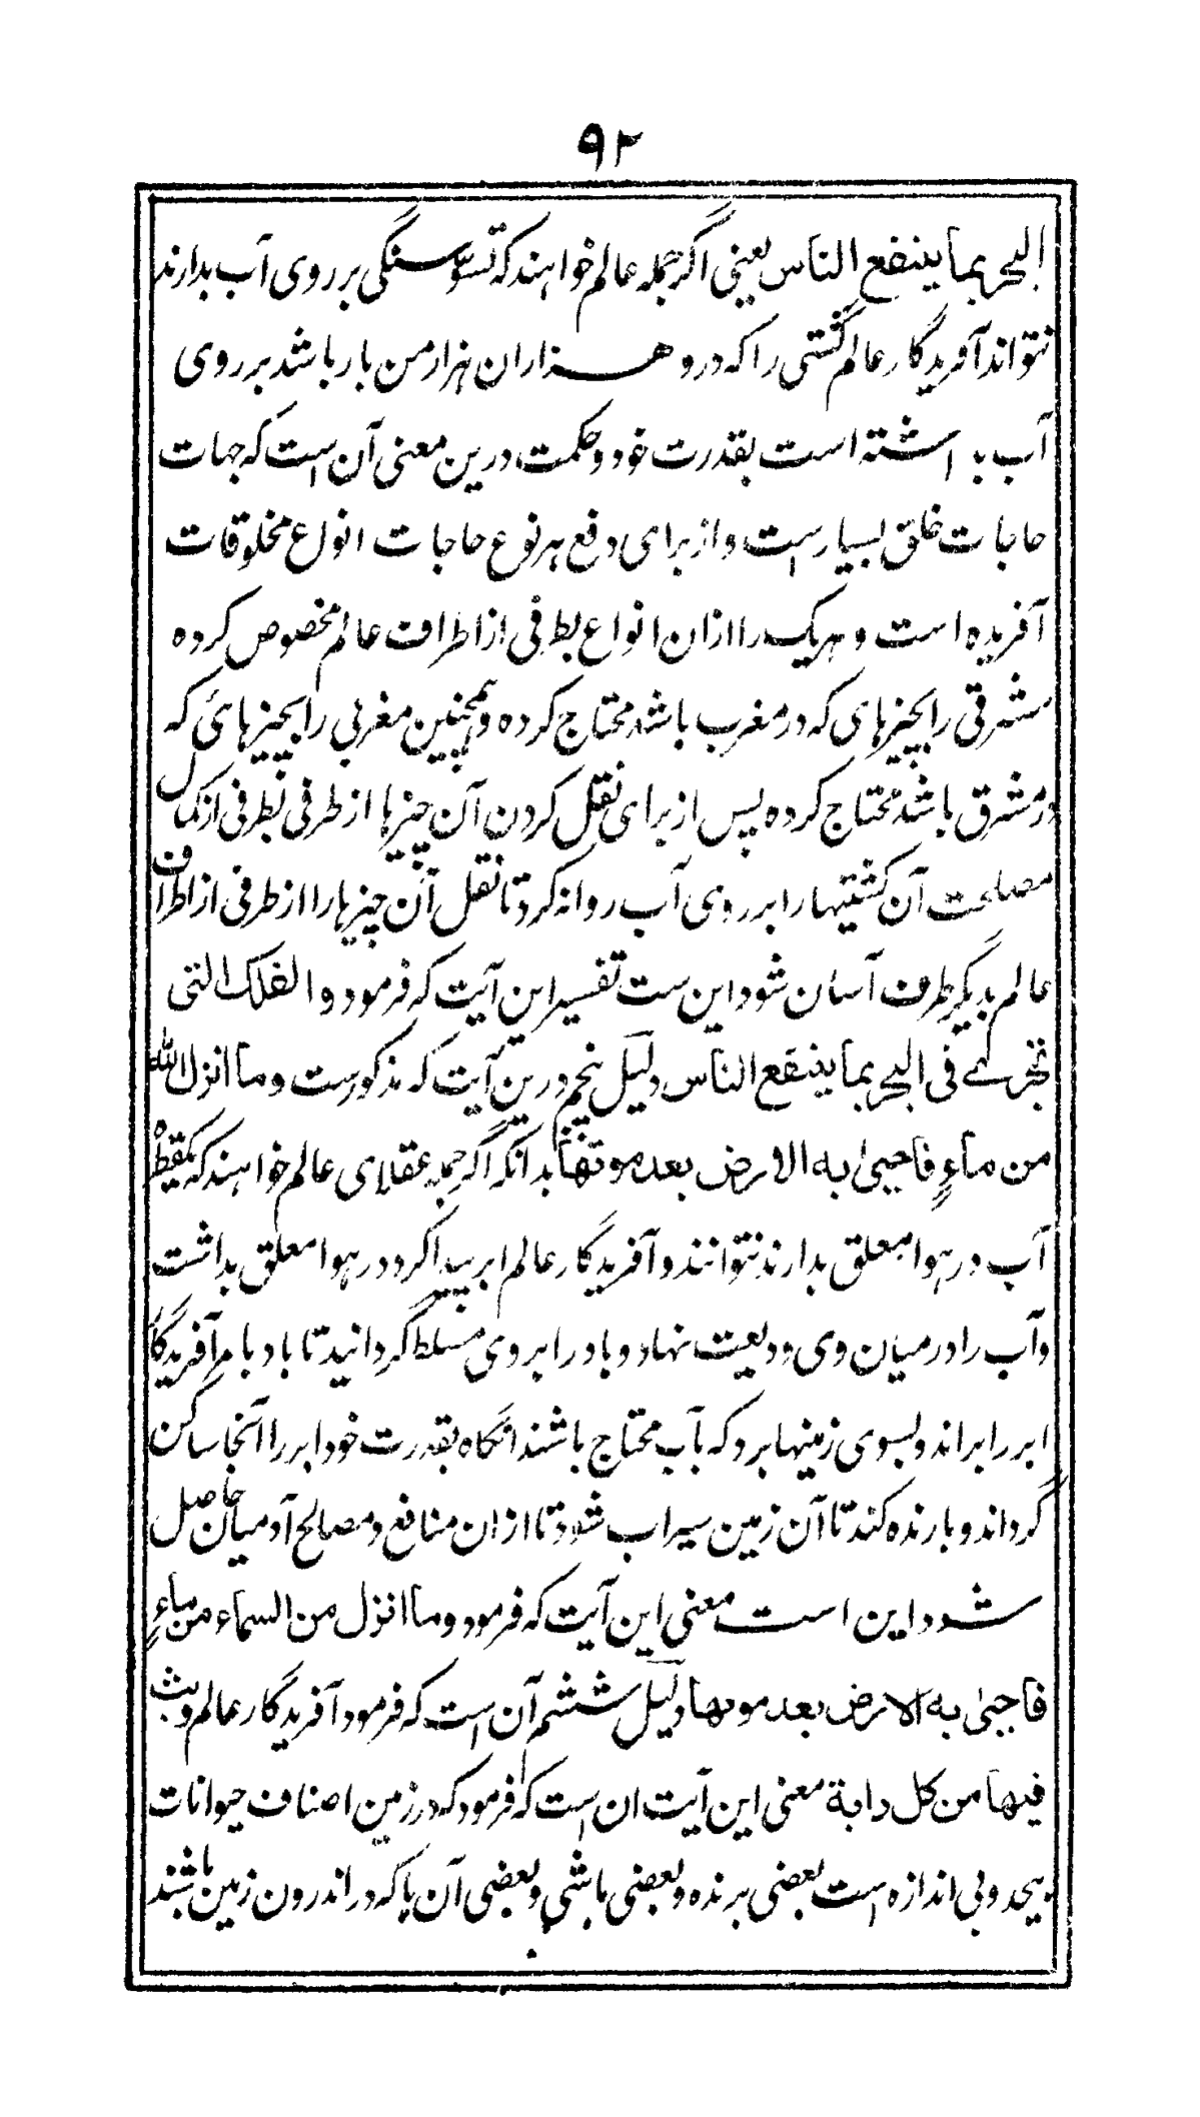 ۹۲
البحر بما ینفع الناس یعنی اگر جمله عالم خواهند که تسوّ سنگی بر روی آب بدارند
نتواند آفریدگار عالم کشتی را که درو هزاران هزار من بار باشد بر روی
آب بداشته است بقدرت خود و حکمت درین معنی آن است که جهات
حاجات خلق بسیار است و از برای دفع هر نوع حاجات انواع مخلوقات
آفریده است و هر یک را ازان انواع بطرفی از اطراف عالم مخصوص کرده
مشرقی را بچیزهای که در مغرب باشد محتاج کرده و همچنین مغربی را بچیزهائی که
در مشرق باشد محتاج کرده پس از برای نقل کردن آن چیزها از طرفی بطرفی از کمال
مصلحت آن کشتیها را بر روی آب روانه کرد تا نقل آن چیزها را از طرفی از اطراف
عالم بدیگر طرف آسان شود این ست تفسیر این آیت که فرمود و الفلک التی
تجری فی البحر بما ینفع الناس دلیل پنجم درین آیت که مذکورست و ما انزل الله
من ماءٍ فاحییٰ به الارض بعد موتها بدانکه اگر جمله عقلای عالم خواهند که یکقطره
آب در هوا معلق بدارند نتوانند و آفریدگار عالم ابر پیدا کرد در هوا معلق بداشت
و آب را در میان وی ودیعت نهاد و باد را بر وی مسلط گردانید تا باد بامر آفریدگار
ابر را براند و بسوی زمینها برد که بآب محتاج باشند انگاه بقدرت خود ابر را آنجا ساکن
گرداند و بارنده کند تا آن زمین سیراب شود تا ازان منافع و مصالح آدمیان حاصل
شود این است معنی این آیت که فرمود و ما انزل من السماء من ماءٍ
فاحییٰ به الارض بعد موتها دلیل ششم آن است که فرمود آفریدگار عالم و بث
فیها من کل دابة معنی این آیت ان است که فرمود که در زمین اصناف حیوانات
بیحد و بی اندازه است بعضی پرنده و بعضی ماشی و بعضی آن پا که در اندرون زمین باشند